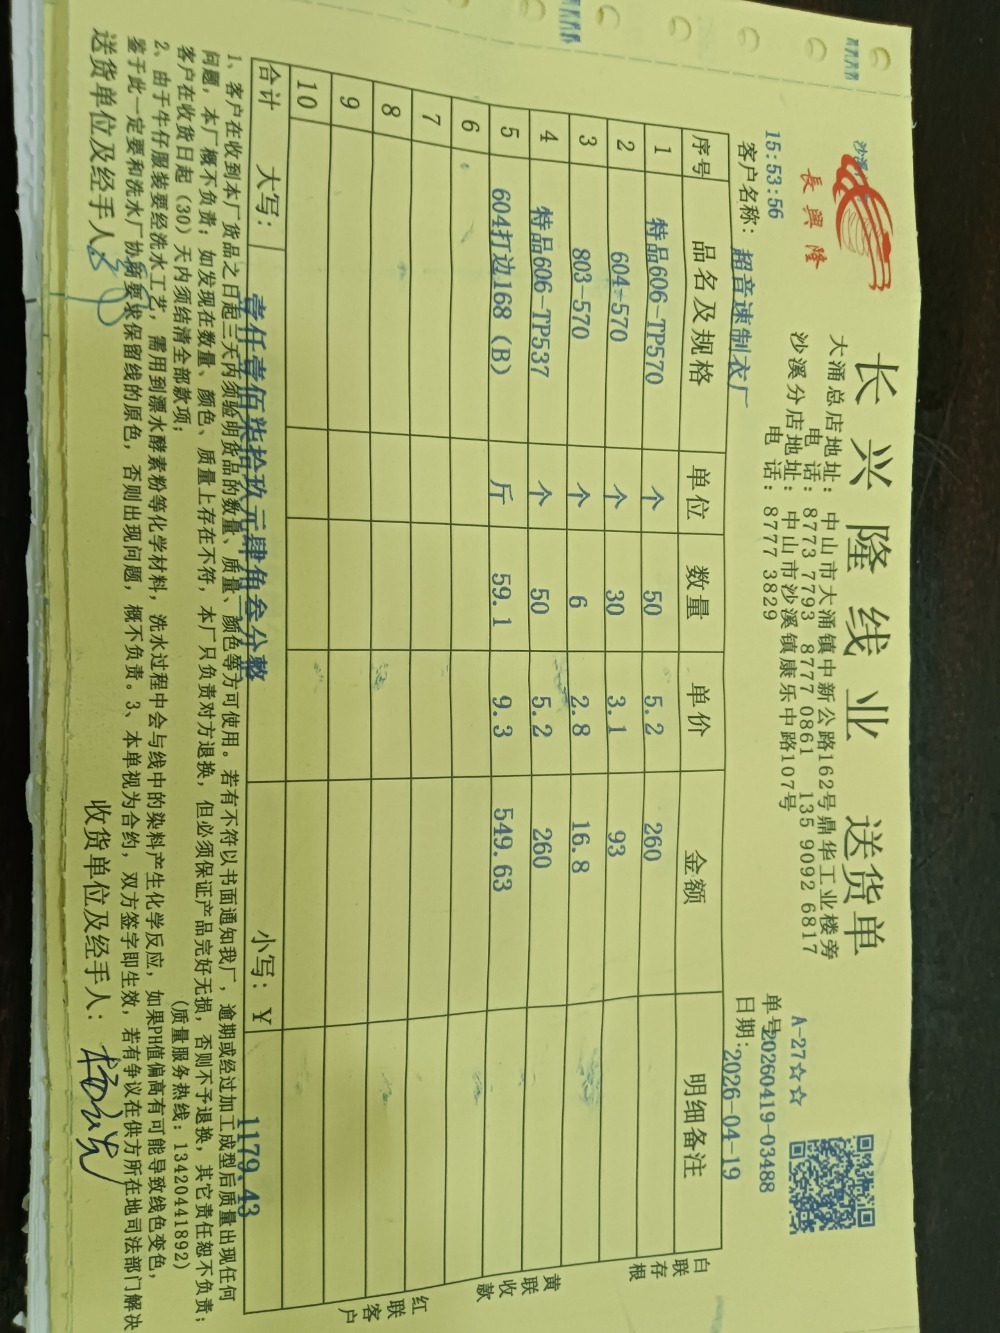 長興隆
长兴隆线业 送货单
大涌总店地址：中山市大涌镇中新公路162号鼎华工业楼旁
电话：8773 7793 8777 0861 135 9092 6817
沙溪分店地址：中山市沙溪镇康乐中路107号
电话：8777 3829
A-27☆☆☆
15:53:56
单号20260419-03488
客户名称：超音速制衣厂
日期：2026-04-19
序号 品名及规格 单位 数量 单价 金额 明细备注
1 特品606-TP570 个 50 5.2 260
2 604-570 个 30 3.1 93
3 803-570 个 6 2.8 16.8
4 特品606-TP537 个 50 5.2 260
5 604打边168（B） 斤 59.1 9.3 549.63
6
7
8
9
10
合计 大写：壹仟壹佰柒拾玖元肆角叁分整 小写：¥ 1179.43
白联存根
黄联收款
红联客户
1、客户在收到本厂货品之日起三天内须验明货品的数量、质量、颜色等方可使用。若有不符以书面通知我厂，逾期或经过加工成型后质量出现任何
问题，本厂概不负责；如发现在数量、颜色、质量上存在不符，本厂只负责对方退换，但必须保证产品完好无损，否则不予退换，其它责任恕不负责；
客户在收货日起（30）天内须结清全部款项； （质量服务热线：13420441892）
2、由于牛仔服装要经洗水工艺，需用到漂水酵素粉等化学材料，洗水过程中会与线中的染料产生化学反应，如果PH值偏高有可能导致线色变色，
鉴于此一定要和洗水厂协商要求保留线的原色，否则出现问题，概不负责。3、本单视为合约，双方签字即生效，若有争议在供方所在地司法部门解决
送货单位及经手人： 收货单位及经手人：